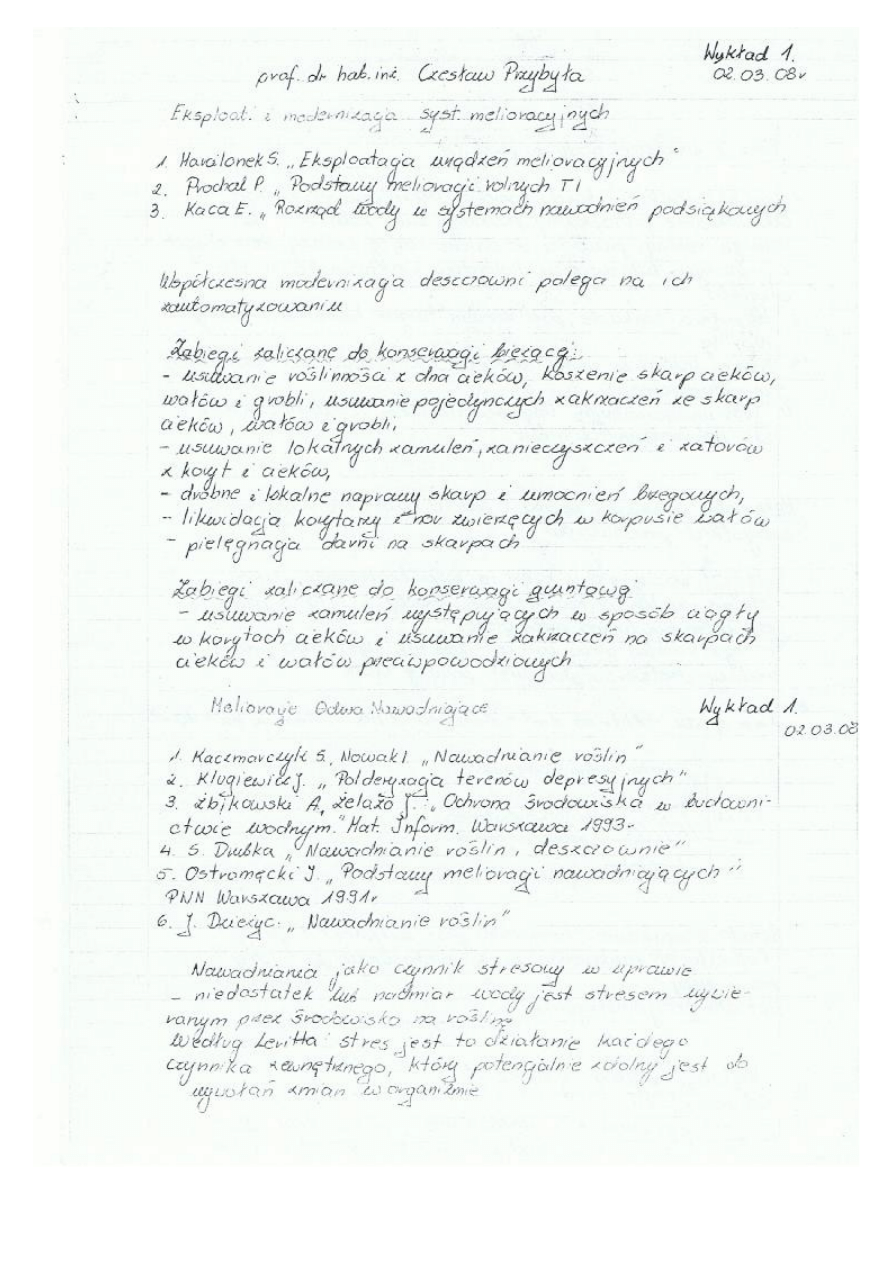 Wykład 1.
prof. dr hab. inż. Czesław Przybyła 02.03.08r
Eksploat. i modernizacja syst. melioracyjnych
1. Hawilonek S. „Eksploatacja urządzeń melioracyjnych"
2. Prochal P. „Podstawy melioracji rolnych T1
3. Kaca E. „Rozrząd wody w systemach nawodnień podsiąkowych
Współczesna modernizacja deszczowni polega na ich
zautomatyzowaniu
Zabiegi zaliczane do konserwacji bieżącej:
- usuwanie roślinności z dna cieków, koszenie skarp cieków,
wałów i grobli, usuwanie pojedynczych zakrzaczeń ze skarp
cieków, wałów i grobli,
- usuwanie lokalnych zamuleń, zanieczyszczeń i zatorów
z koryt i cieków,
- drobne i lokalne naprawy skarp i umocnień brzegowych,
- likwidacja korytarzy i nor zwierzęcych w korpusie wałów
- pielęgnacja darni na skarpach
Zabiegi zaliczane do konserwacji gruntowej
- usuwanie zamuleń występujących w sposób ciągły
w korytach cieków i usuwanie zakrzaczeń na skarpach
cieków i wałów przeciwpowodziowych
Melioracje Odwa. Nawadniające Wykład 1.
02.03.08
1. Kaczmarczyk S., Nowak L. „Nawadnianie roślin"
2. Klugiewicz J. „Polderyzacja terenów depresyjnych"
3. Żbikowski A, Żelazo J. „Ochrona środowiska w budowni-
ctwie wodnym." Mat. Inform. Warszawa 1993r
4. S. Drubka „Nawadnianie roślin, deszczownie"
5. Ostromęcki J. „Podstawy melioracji nawadniających"
PWN Warszawa 1991r
6. J. Dzieżyc. „Nawadnianie roślin"
Nawadniania jako czynnik stresowy w uprawie
- niedostatek lub nadmiar wody jest stresem wywie-
ranym przez środowisko na roślinę
Według Levitta stres jest to działanie każdego
czynnika zewnętrznego, który potencjalnie zdolny jest do
wywołań zmian w organizmie